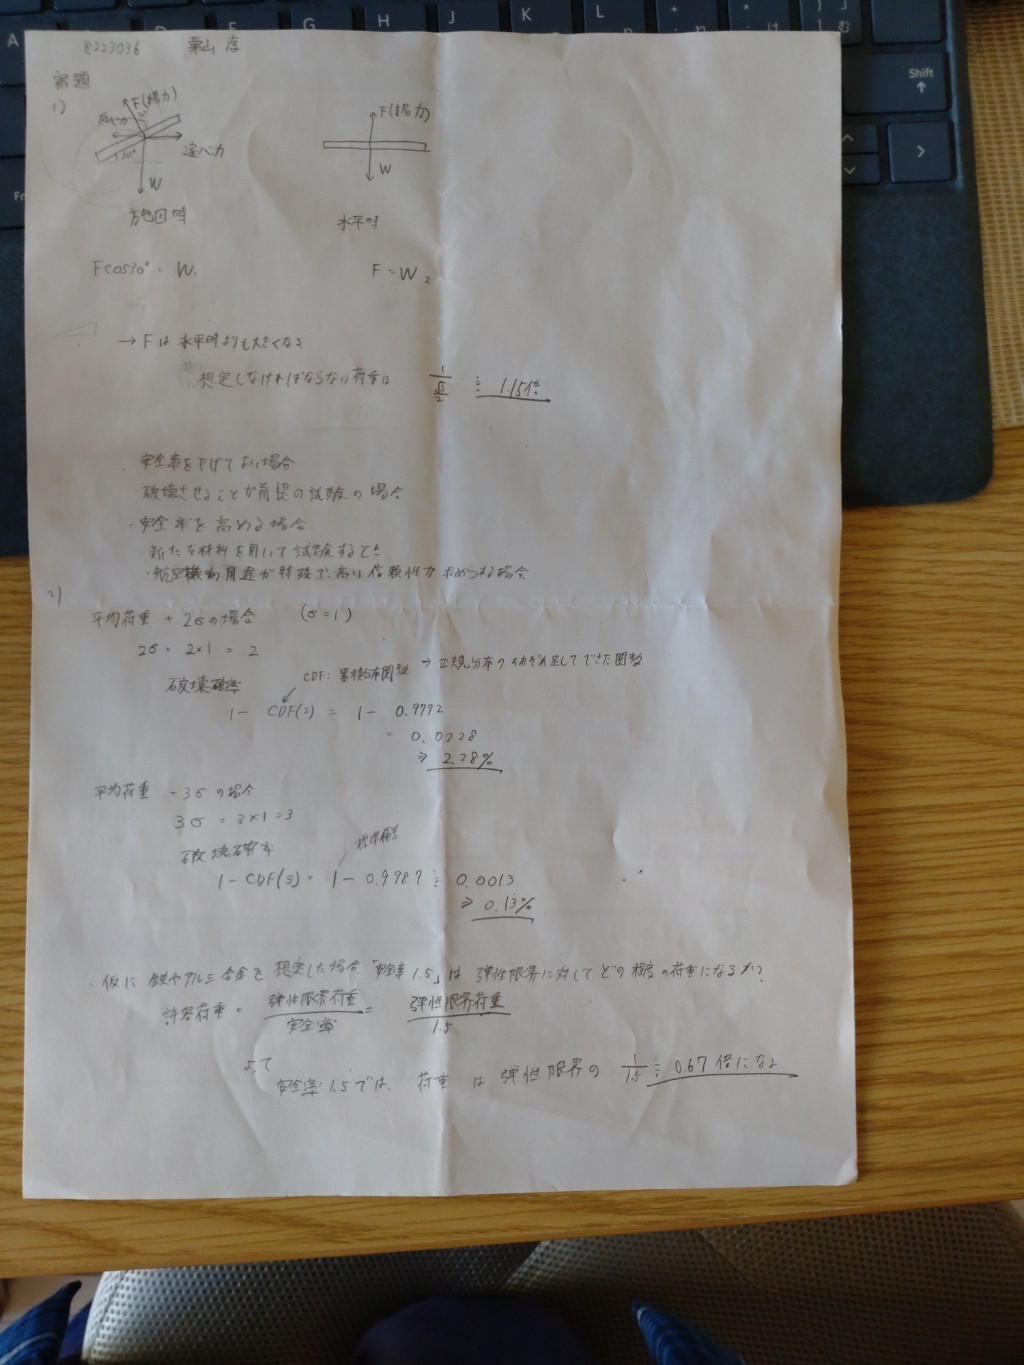 A
D
F
G
H
J
K
L
+
*
Shift
8223036 栗山 彦
宿題
1)
F(揚力)
F(揚力)
30°
遠心力
W
W
旋回時
水平時
Fcos30° = W,
F = W 2
→ Fは水平時よりも大きくなる
想定しなければならない荷重は 1/(√3/2) ≒ 1.15倍
安全率を下げてよい場合
破壊させることが前提の試験の場合
・安全率を高める場合
新たな材料を用いて試験するとき
・航空機の用途が特殊で高い信頼性が求められる場合
2)
平均荷重 + 2σの場合 (σ=1)
2σ = 2×1 = 2
CDF: 累積分布関数 → 正規分布のそれぞれ足してできた関数
破壊確率
1 - CDF(2) = 1 - 0.9772
= 0.0228
⇒ 2.28%
平均荷重 - 3σの場合
3σ = 3×1 = 3
破壊確率
1 - CDF(3) = 1 - 0.9987 ≒ 0.0013
⇒ 0.13%
・仮に鉄やアルミ合金を想定した場合「安全率1.5」は弾性限界に対してどの程度の荷重になるか?
許容荷重 = 弾性限界荷重/安全率 = 弾性限界荷重/1.5
よって
安全率1.5では、荷重は弾性限界の 1/1.5 ≒ 0.67倍になる